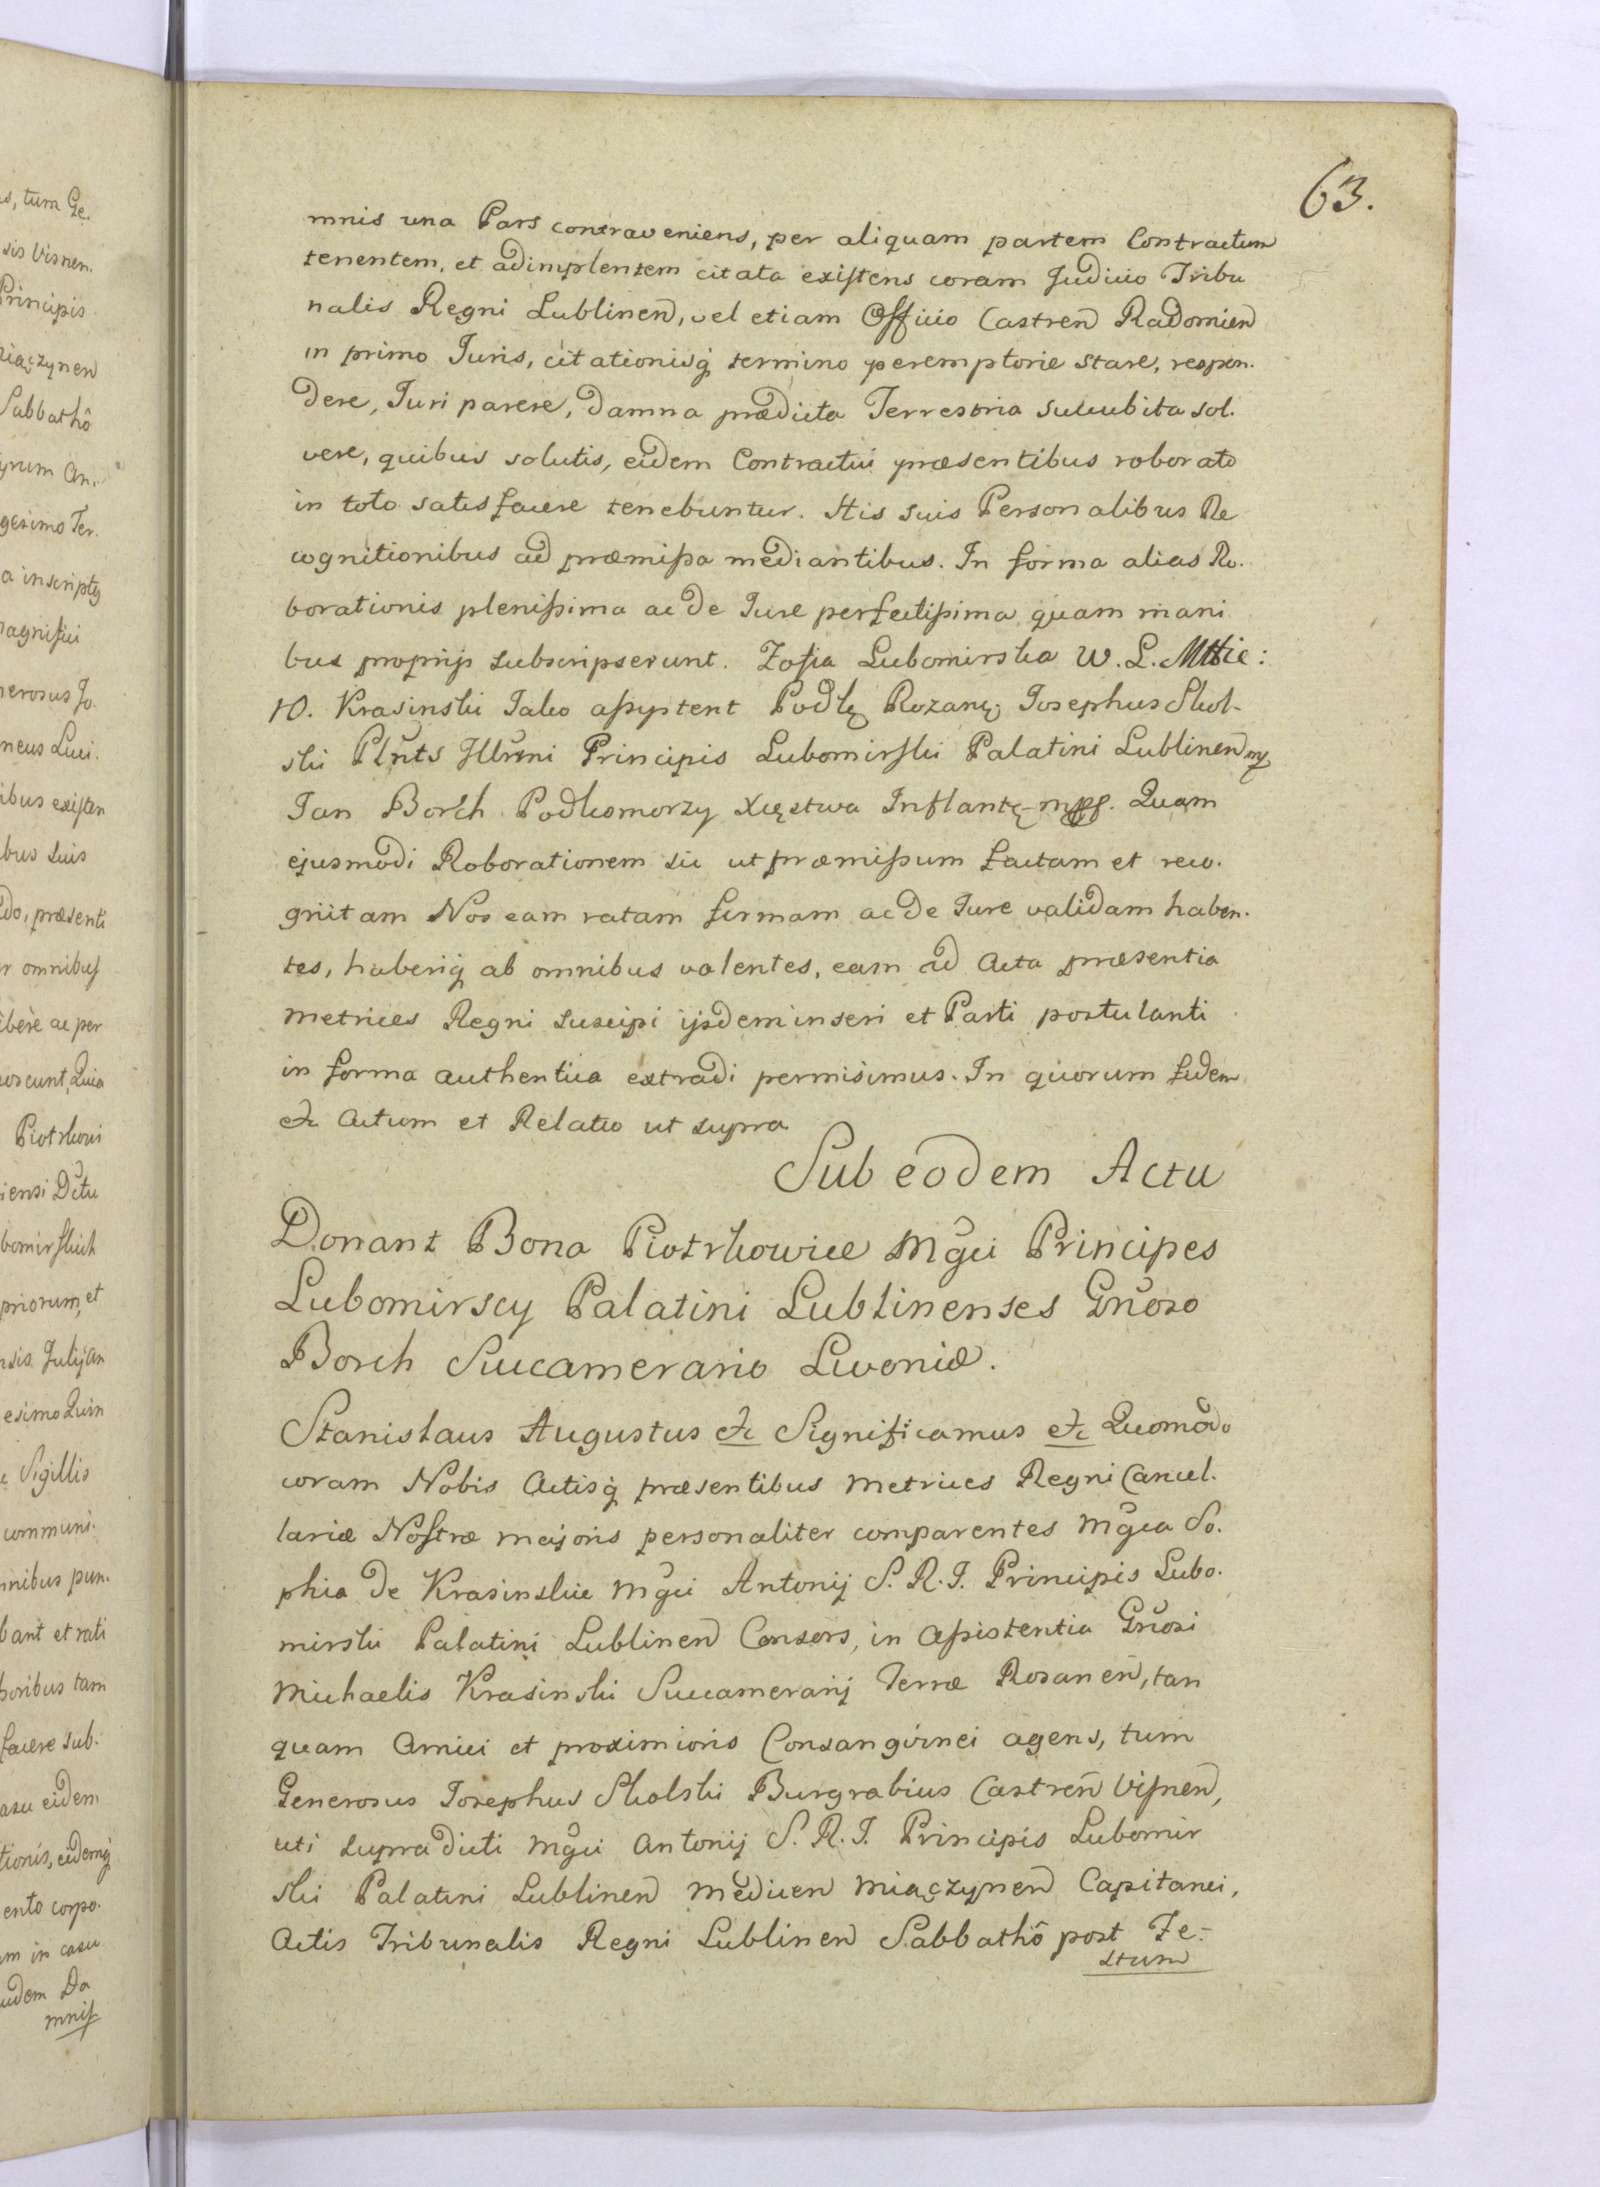 63.
mnis una Pars contraveniens, per aliquam partem Contractum
tenentem, et adimplentem citata existens coram Judicio Tribu
nalis Regni Lublinen, vel etiam Officio Castren Radomien
in primo Juris, citationisq termino peremptorie stare, respon.
dere, Juri parere, damna prædicta Terrestria succubita sol.
vere, quibus solutis, eidem Contractui præsentibus roborato
in toto satisfacere tenebuntur. His suis Personalibus Re
cognitionibus ad præmissa mediantibus. In forma alias Ro.
borationis plenissima ac de Jure perfectissima, quam mani
bus proprijs subscripserunt. Zofia Lubomirska W. L.
Krasinski Jako assystent Podk Rozanę; Josephus Skol-
ski Plnts Illrmi Principis Lubomirski Palatini Lublinen mp
Jan Borch Podkomorzy Xięstwa Inflantę mpp. Quam
ejusmodi Roborationem sic ut præmissum factam et reco.
gnitam Nos eam ratam firmam ac de Jure validam haben.
tes, haberiq ab omnibus volentes, eam ad Acta præsentia
Metrices Regni suscipi ijsdem inseri et Parti postulanti
in forma authentica extradi permisimus. In quorum fidem
etc Actum et Relatio ut supra
Sub eodem Actu
Donant Bona Piotrkowice Mgci Principes
Lubomirscy Palatini Lublinenses Gnoso
Borch Succamerario Livoniæ.
Stanislaus Augustus etc Significamus etc Quomodo
coram Nobis Actisq præsentibus Metrices Regni Cancel.
lariæ Nostræ majoris personaliter comparentes Mgca So.
phia de Krasinskie Mgci Antonij S. R. I. Principis Lubo.
mirski Palatini Lublinen Consors, in Assistentia Gnosi
Michaelis Krasinski Succamerarij Terræ Rosanen, tan
quam Amici et proximioris Consangvinei agens, tum
Generosus Josephus Skolski Burgrabius Castren Visnen,
uti supradicti Mgci Antonij S. R. I. Principis Lubomir
ski Palatini Lublinen Medicen Miączynen Capitanei,
Actis Tribunalis Regni Lublinen Sabbathô post Fe-
stum